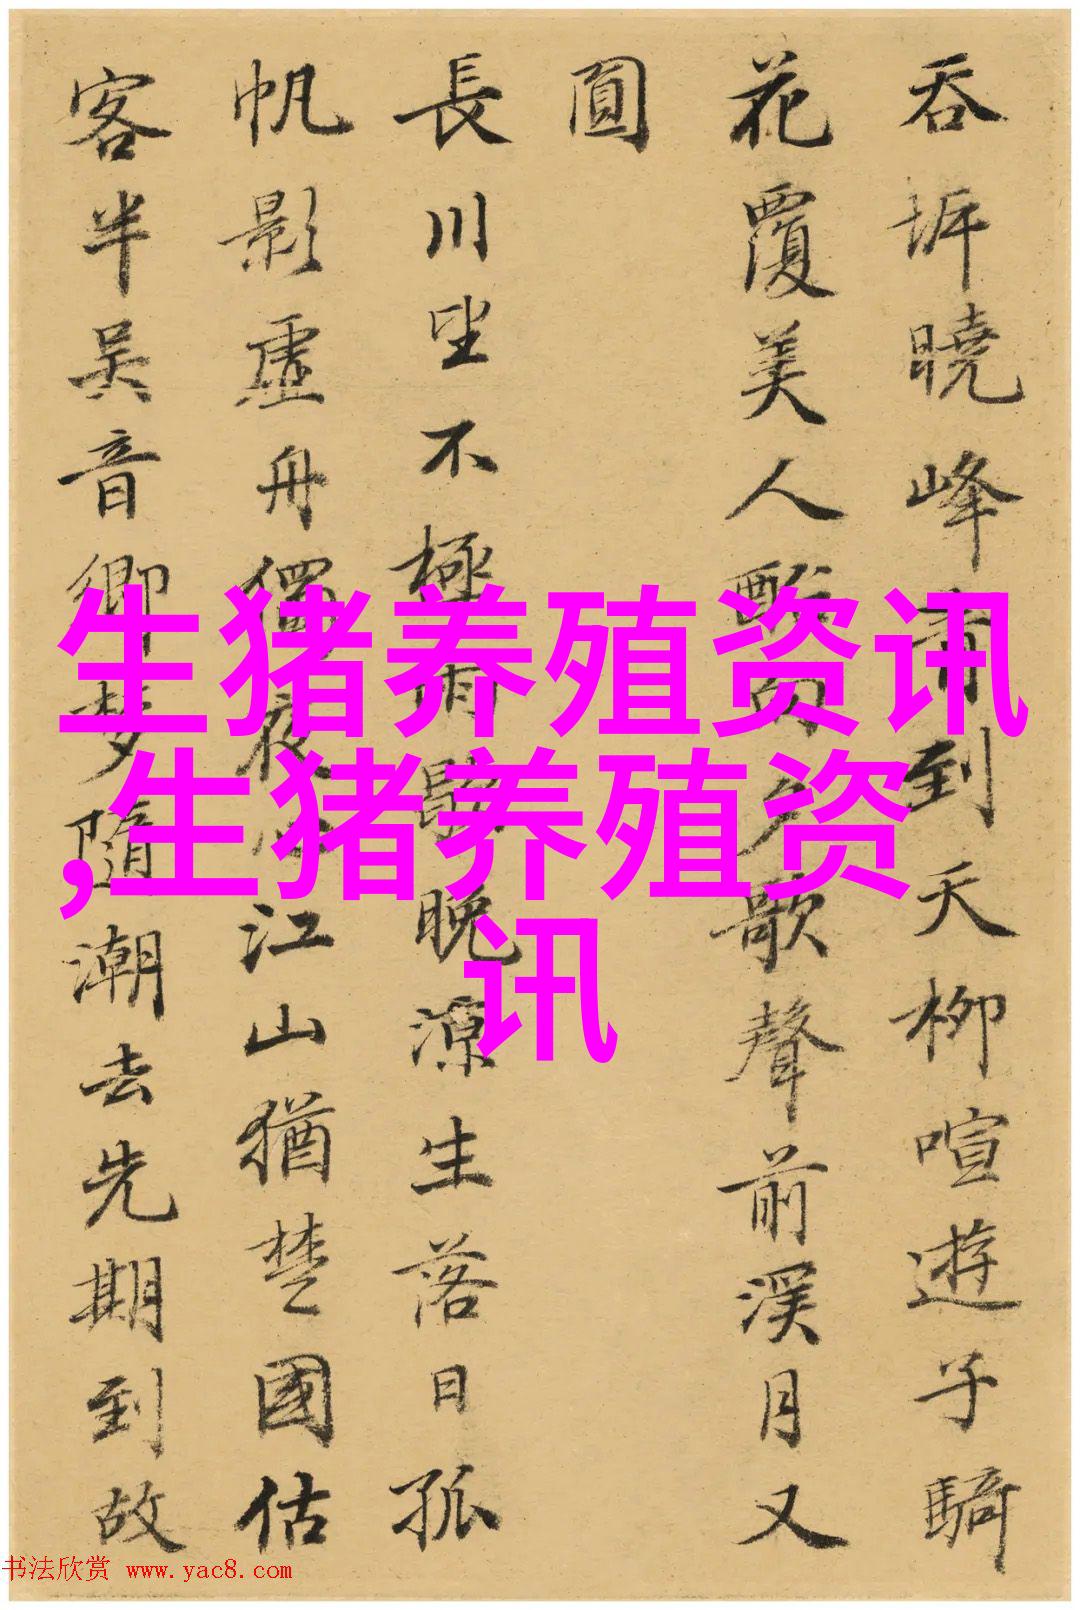 吞坼曉峰青到天柳喧遊子騎
花覆美人向夕歌聲前溪月又
圓
長川坐不極雨歇晚涼生落日孤
帆影虛舟夜心江山猶楚國估
客半吳音鄉夢隨潮去先期到故
生猪养殖资讯
,生猪养殖资
讯
书法欣赏 www.yac8.com